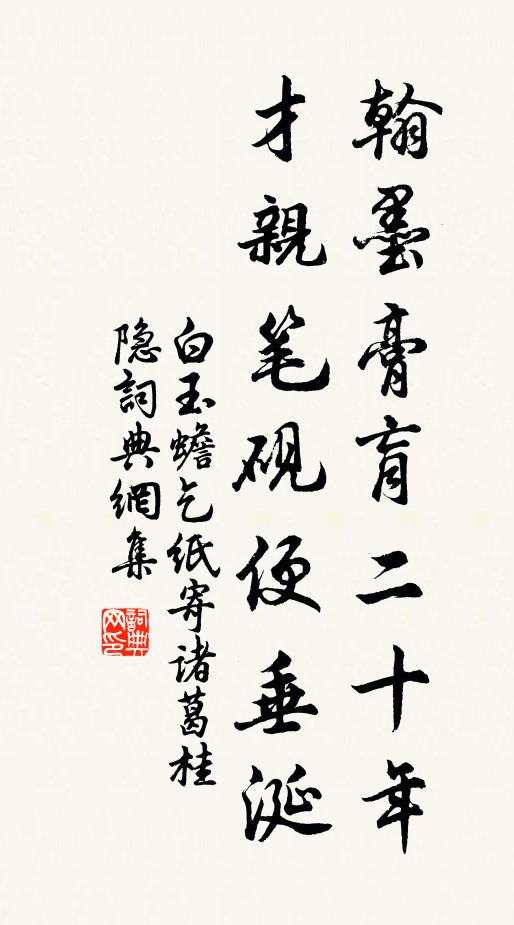 翰墨膏肓二十年
才親笔硯便垂涎
白玉蟾乞紙寄诸葛桂
隐詞典網集
詞典网印